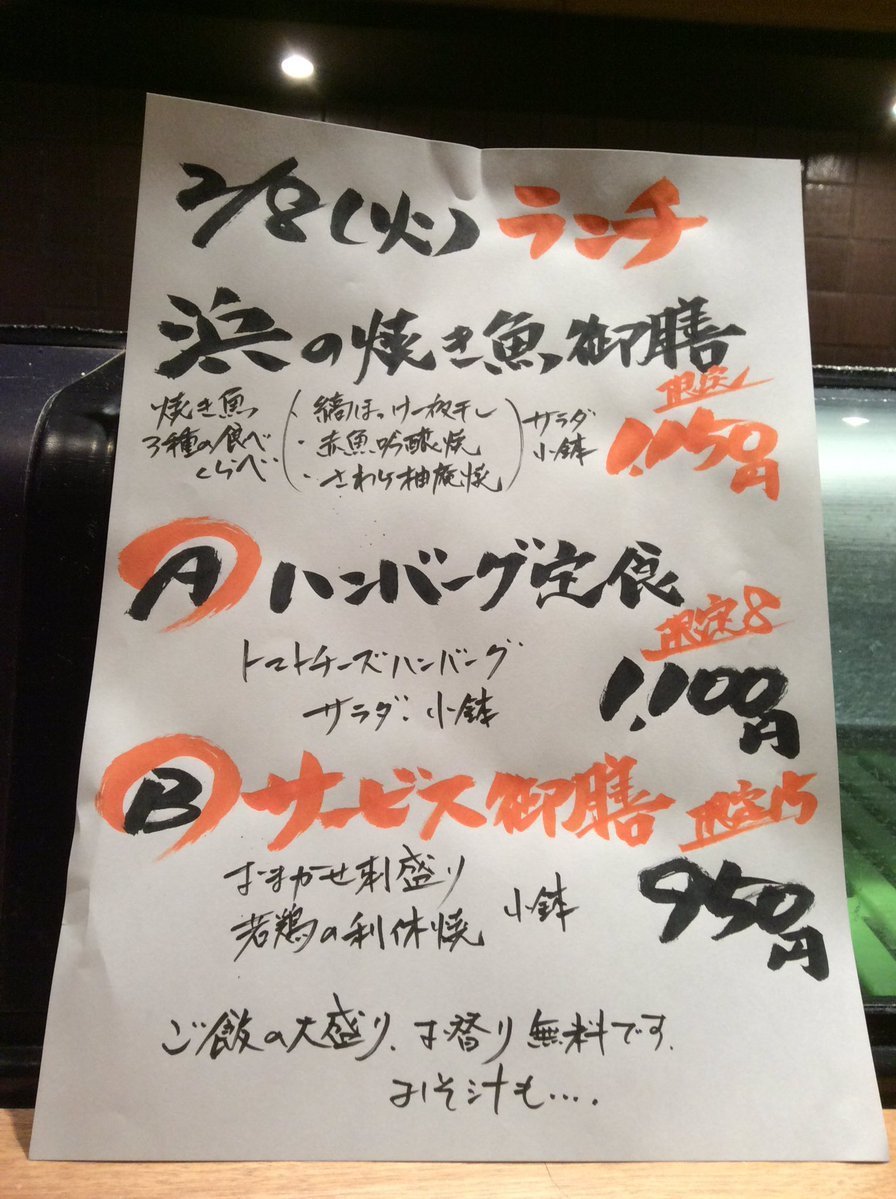 2/8(火) ランチ
浜の焼き魚御膳
焼き魚
3種の食べ
くらべ
・縞ほっけ一夜干し
・赤魚吟醸焼
・さわら柚庵焼
サラダ
小鉢
限定
1,150円
A ハンバーグ定食
限定8
トマトチーズハンバーグ
サラダ・小鉢
1,100円
B サービス御膳 限定15
おまかせ刺盛り
若鶏の利休焼
小鉢
950円
ご飯の大盛り、お替り無料です、
みそ汁も….